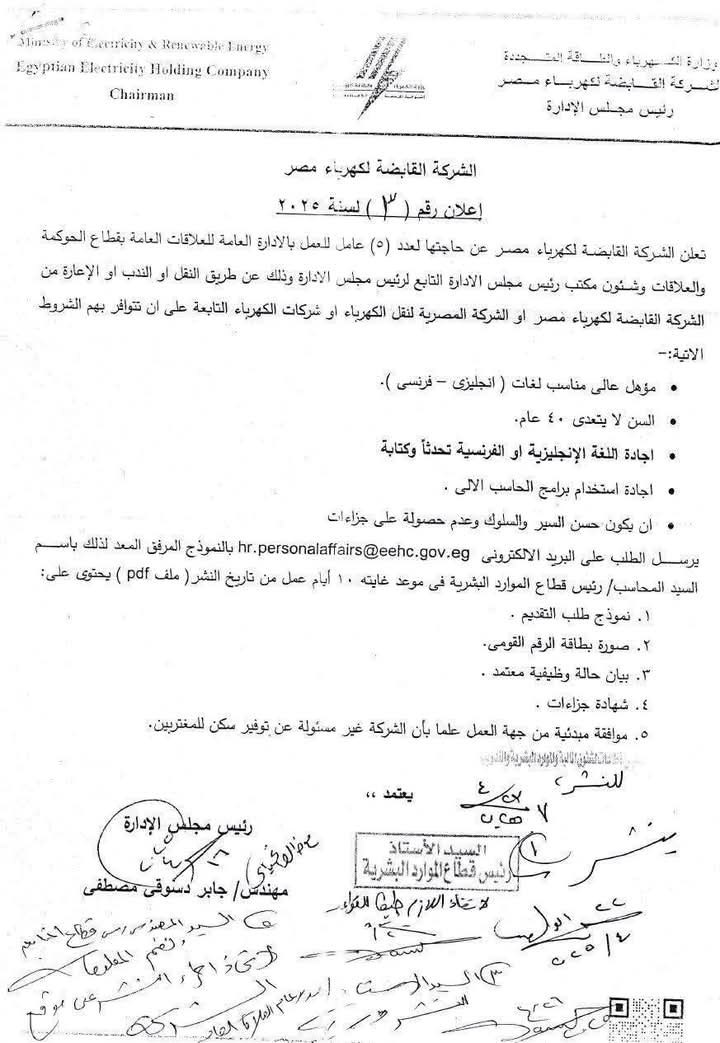 Ministry of Electricity & Renewable Energy
Egyptian Electricity Holding Company
Chairman
وزارة الكهرباء والطاقة المتجددة
لشركة القابضة لكهرباء مصر
رئيس مجلس الإدارة
الشركة القابضة لكهرباء مصر
إعلان رقم ( ٣ ) لسنة ٢٠٢٥
تعلن الشركة القابضة لكهرباء مصر عن حاجتها لعدد (٥) عامل للعمل بالادارة العامة للعلاقات العامة بقطاع الحوكمة
والعلاقات وشئون مكتب رئيس مجلس الادارة التابع لرئيس مجلس الادارة وذلك عن طريق النقل او الندب او الإعارة من
الشركة القابضة لكهرباء مصر او الشركة المصرية لنقل الكهرباء او شركات الكهرباء التابعة على ان تتوافر بهم الشروط
الاتية:-
• مؤهل عالى مناسب لغات ( انجليزى – فرنسى ).
• السن لا يتعدى ٤٠ عام.
• اجادة اللغة الإنجليزية او الفرنسية تحدثاً وكتابة
• اجادة استخدام برامج الحاسب الالى .
• ان يكون حسن السير والسلوك وعدم حصولة على جزاءات
يرسل الطلب على البريد الالكترونى hr.personalaffairs@eehc.gov.eg بالنموذج المرفق المعد لذلك باسم
السيد المحاسب/ رئيس قطاع الموارد البشرية فى موعد غايته ١٠ أيام عمل من تاريخ النشر( ملف pdf ) يحتوى على:
١. نموذج طلب التقديم .
٢. صورة بطاقة الرقم القومى.
٣. بيان حالة وظيفية معتمد .
٤. شهادة جزاءات .
٥. موافقة مبدئية من جهة العمل علما بأن الشركة غير مسئولة عن توفير سكن للمغتربين.
للنشر
يعتمد ،،
رئيس مجلس الإدارة
مهندس/ جابر دسوقى مصطفى
السيد الأستاذ
رئيس قطاع الموارد البشرية